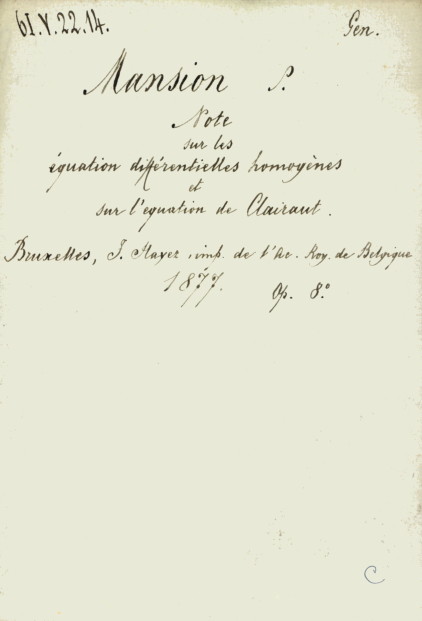 61.V.22.14.
Gen.
Mansion P.
Note
sur les
équation différentielles homogènes
et
sur l'equation de Clairaut.
Bruxelles, F. Hayez, imp. de l'Ac. Roy. de Belgique
1877.
Op. 8.°
C